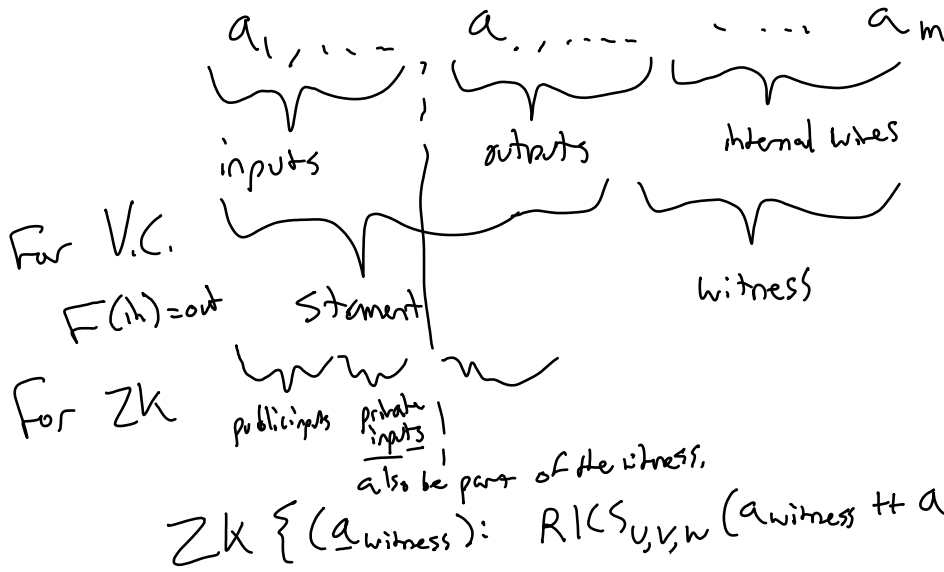 a₁, .... , a., ..... .... aₘ
inputs outputs internal wires
For V.C.
F(in)=out Stament witness
For ZK public inputs private inputs
also be part of the witness.
ZK {(a witness): R1CS U,V,W (a witness ++ a